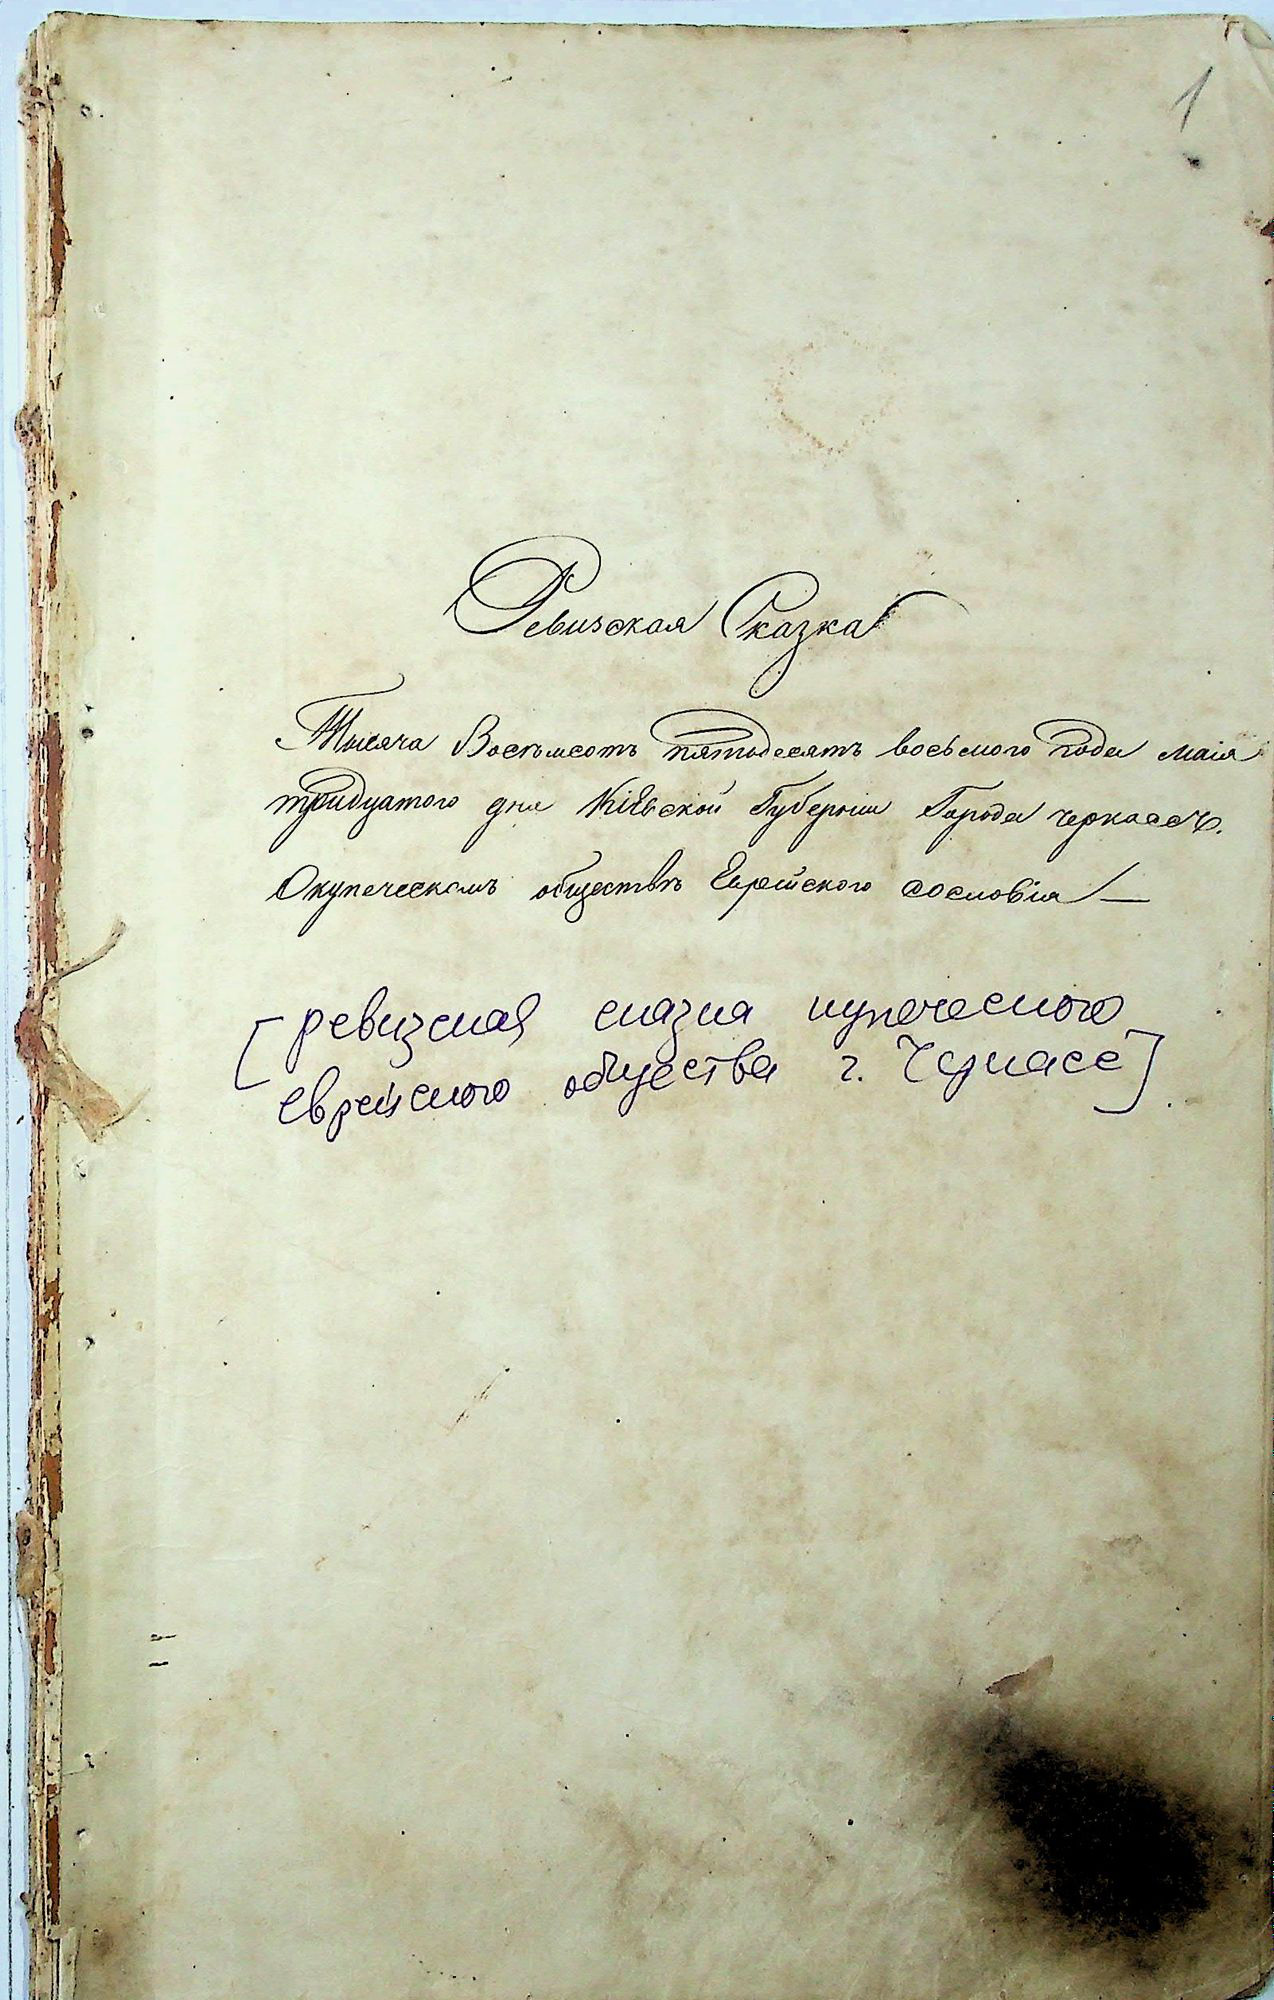 1
Ревизская Сказка
Тысяча Восемьсотъ пятьдесятъ восьмого года маія
тридцатого дня Кіевской Губерніи Города черкассъ.
Окупеческомъ обществѣ Еврейского сословія —
[ревизская сказка купеческого
еврейского общества г. Черкасс].